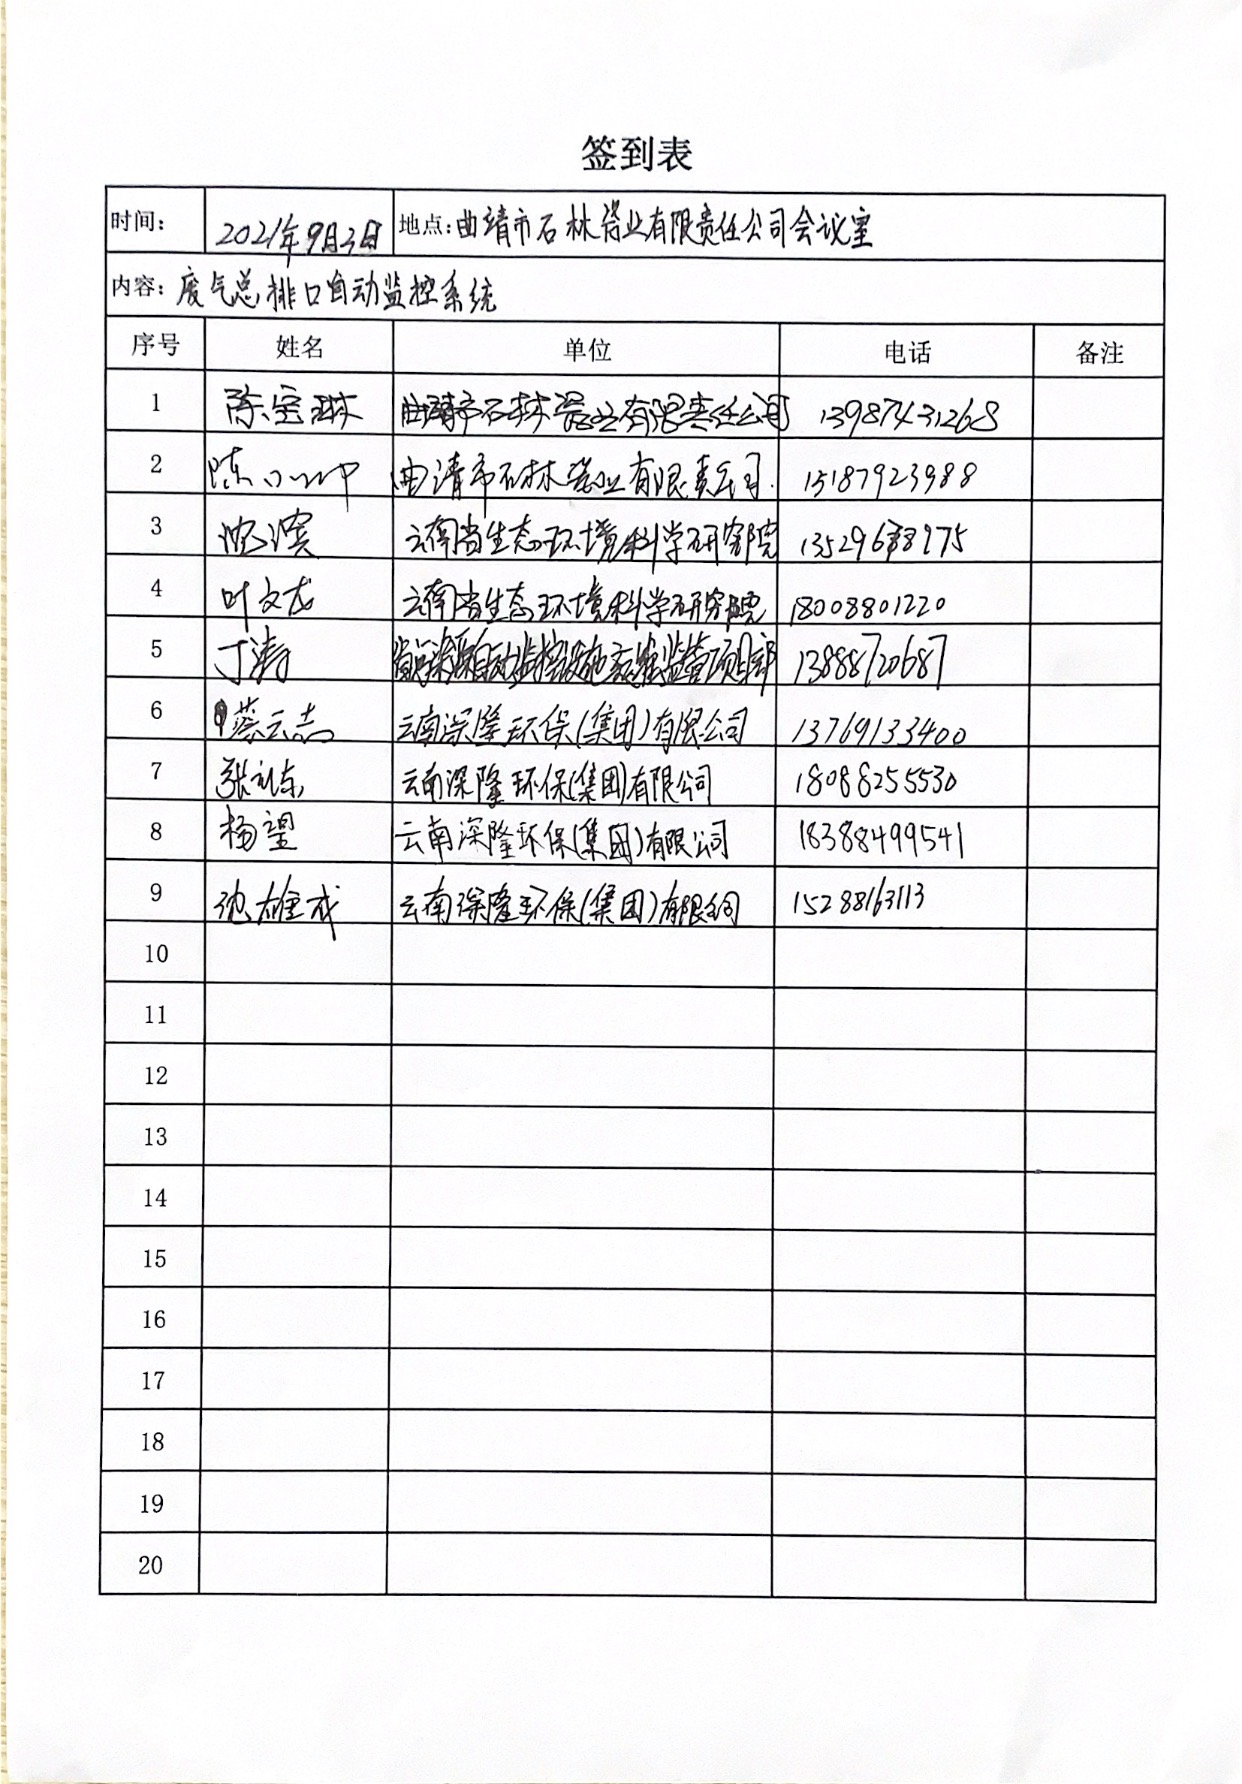 签到表
时间： 2021年9月3日 地点：曲靖市石林瓷业有限责任公司会议室
内容：废气总排口自动监控系统
序号 姓名 单位 电话 备注
1 陈宝琳 曲靖市石林瓷业有限责任公司 13987431268
2 陈 曲靖市石林瓷业有限责公司 15187923988
3 沈滨 云南省生态环境科学研究院
4 叶文龙 云南省生态环境科学研究院 18008801220
5 丁涛 自动监控设施 监查项目部 13888720687
6 蔡云志 云南深隆环保(集团)有限公司 13769133400
7 张 云南深隆环保(集团)有限公司 18088255530
8 杨望 云南深隆环保(集团)有限公司 18388499541
9 雄成 云南深隆环保(集团)有限公司 15288163113
10
11
12
13
14
15
16
17
18
19
20